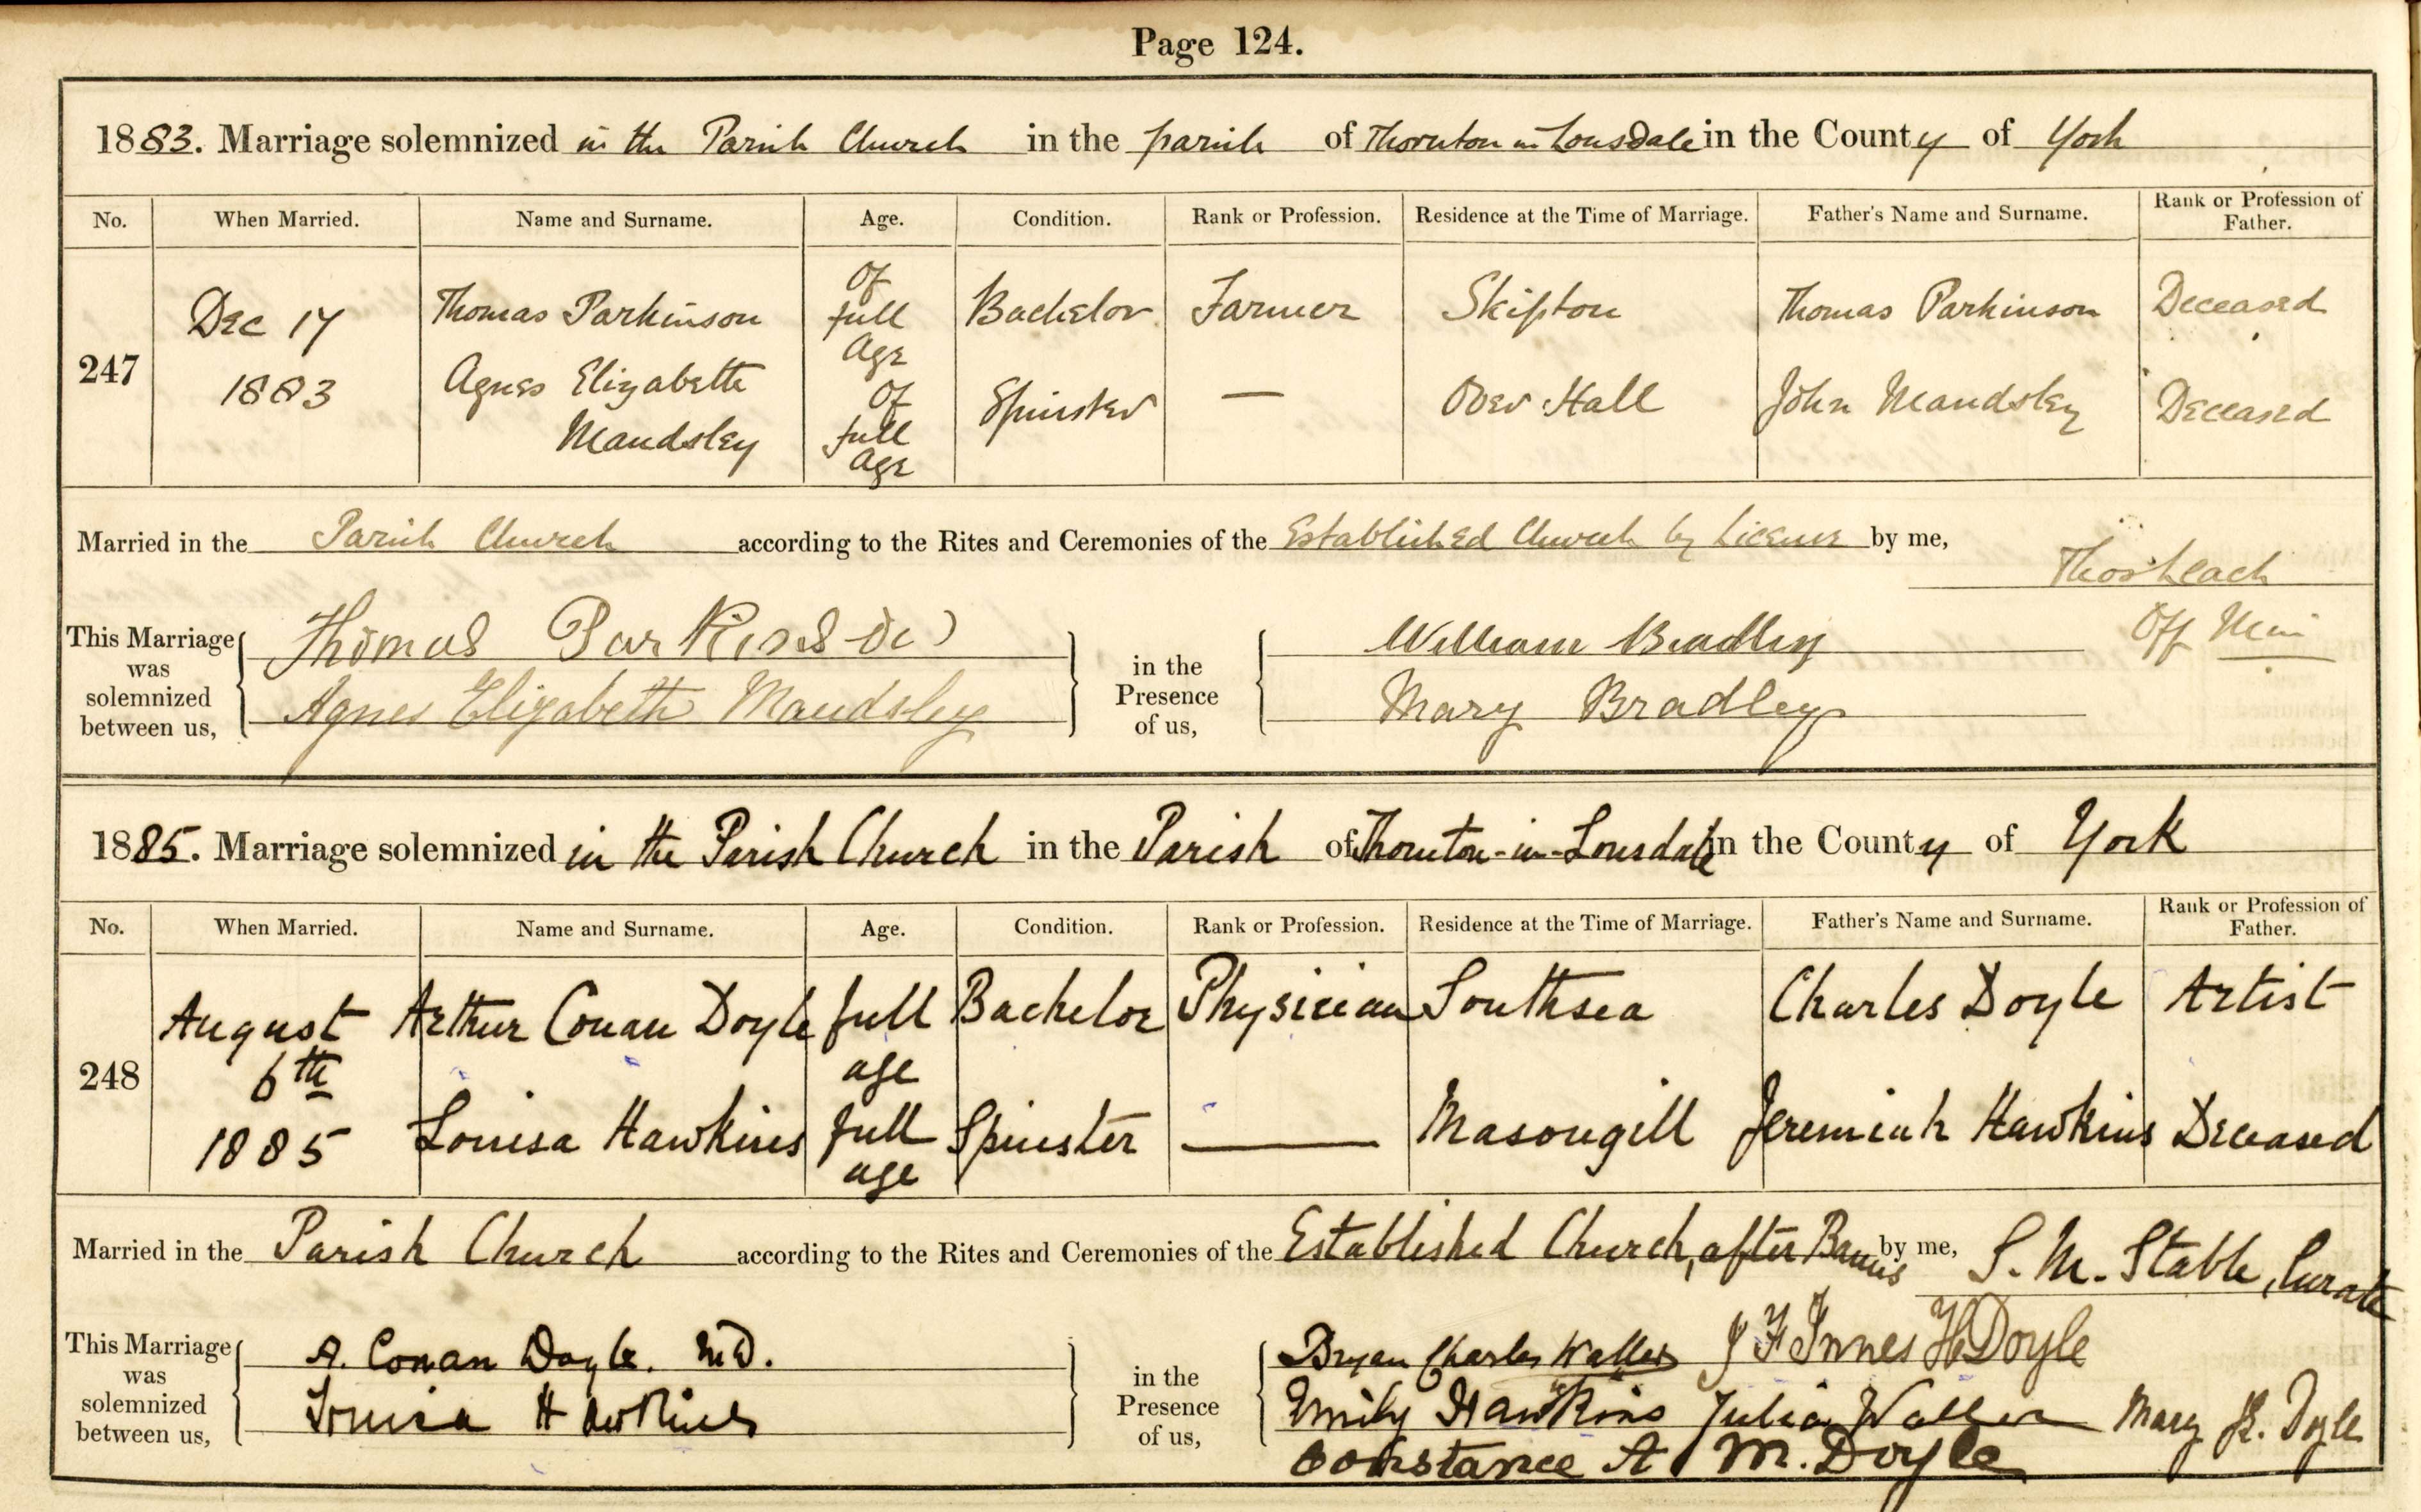 Page 124.
1883. Marriage solemnized in the Parish Church in the parish of Thornton in Lonsdale in the County of York
No. When Married. Name and Surname. Age. Condition. Rank or Profession. Residence at the Time of Marriage. Father's Name and Surname. Rank or Profession of Father.
247 Dec 17 1883
Thomas Parkinson Of full Age Bachelor Farmer Skipton Thomas Parkinson Deceased
Agnes Elizabeth Maudsley Of full Age Spinster — Over Hall John Maudsley Deceased
Married in the Parish Church according to the Rites and Ceremonies of the Established Church by License by me,
Thos Leach
Off Min
This Marriage was solemnized between us, Thomas Parkinson in the Presence of us, William Bradley
Agnes Elizabeth Maudsley Mary Bradley
1885. Marriage solemnized in the Parish Church in the Parish of Thornton-in-Lonsdale in the County of York
No. When Married. Name and Surname. Age. Condition. Rank or Profession. Residence at the Time of Marriage. Father's Name and Surname. Rank or Profession of Father.
248 August 6th 1885
Arthur Conan Doyle full age Bachelor Physician Southsea Charles Doyle Artist
Louisa Hawkins full age Spinster — Masongill Jeremiah Hawkins Deceased
Married in the Parish Church according to the Rites and Ceremonies of the Established Church, after Banns by me, S. M. Stable, Curate
This Marriage was solemnized between us, A. Conan Doyle. M.D. in the Presence of us, Bryan Charles Waller J F Innes H Doyle
Louisa Hawkins Emily Hawkins Julia Waller Mary J. E. Doyle
Constance A M. Doyle